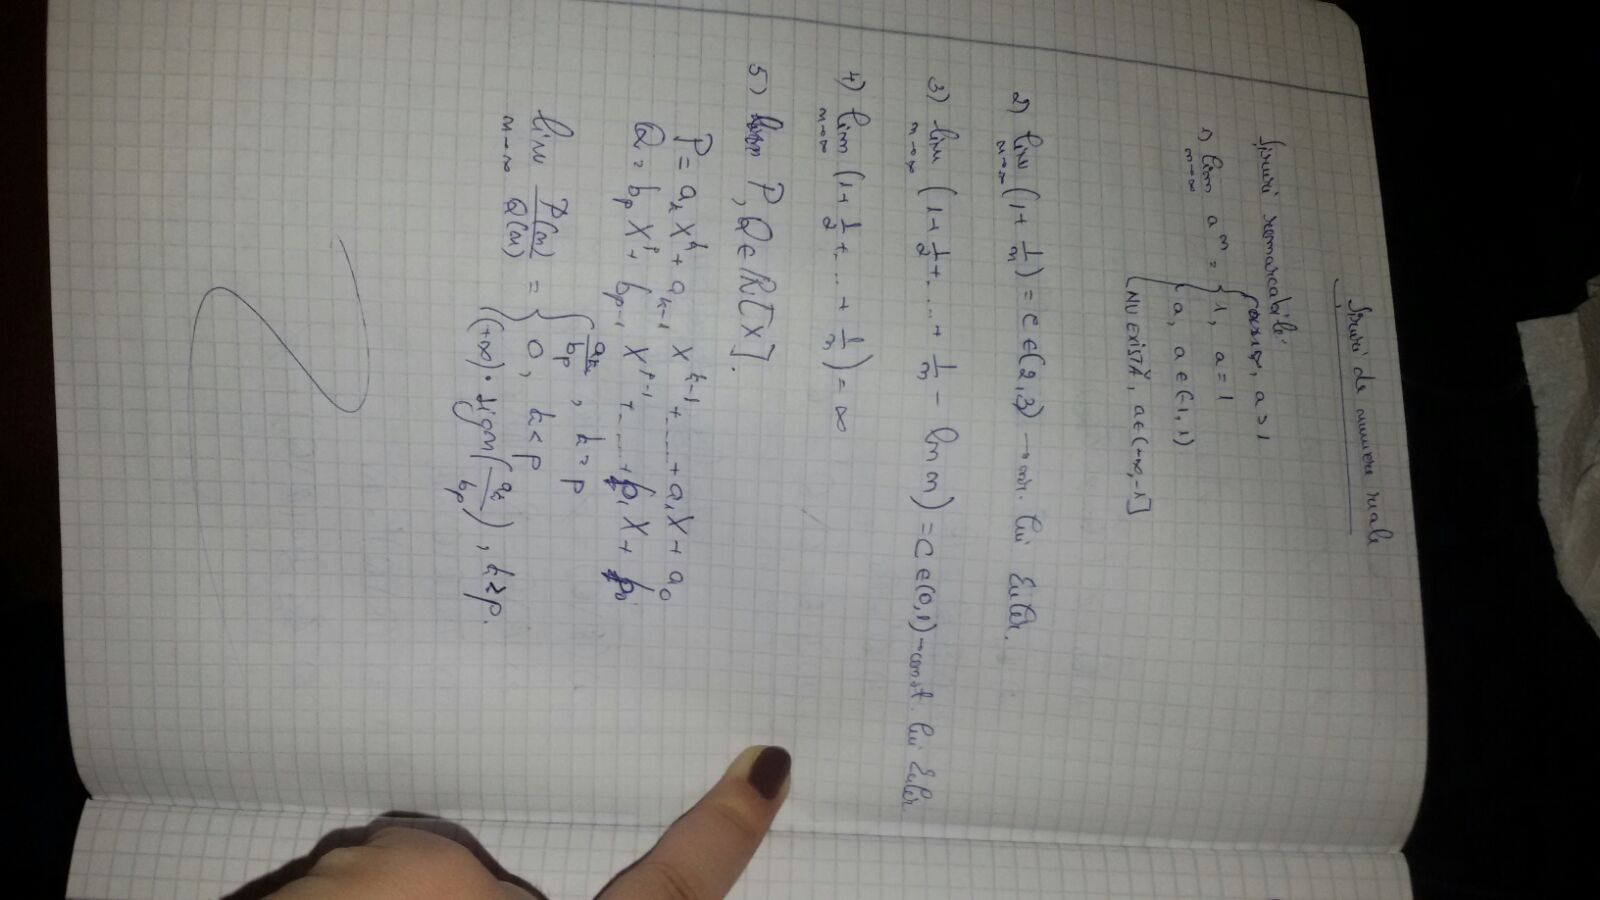 Șiruri de numere reale
Șiruri remarcabile
1) lim n→∞ a^n = { , a>1
1, a=1
a, a∈(-1,1)
NU EXISTĂ, a∈(-∞,-1]
2) lim n→∞ (1+ 1/n) = e ∈(2,3) → nr. lui Euler.
3) lim n→∞ (1+ 1/2 + .... + 1/n - ln n) = C ∈(0,1) → const. lui Euler.
4) lim n→∞ (1+ 1/2 + ... + 1/n) = ∞
5) P, Q ∈ R[X].
P = a_k X^k + a_{k-1} X^{k-1} + ..... + a_1 X + a_0
Q = b_p X^p + b_{p-1} X^{p-1} + ..... + b_1 X + b_0
lim n→∞ P(n)/Q(n) = { a_k/b_p , k = p
0, k < p
(+∞) · sign(a_k/b_p), k > p.